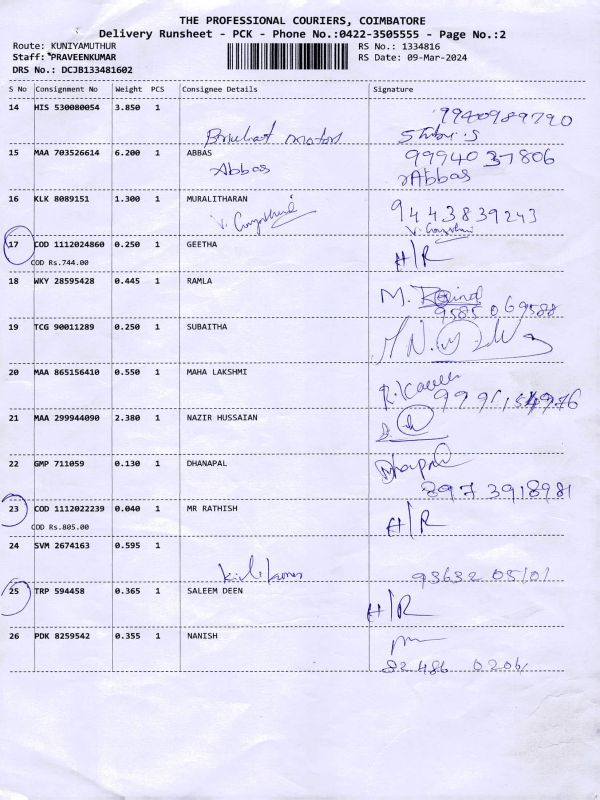 THE PROFESSIONAL COURIERS, COIMBATORE
Delivery Runsheet - PCK - Phone No.:0422-3505555 - Page No.:2
Route: KUNIYAMUTHUR RS No.: 1334816
Staff: *PRAVEENKUMAR RS Date: 09-Mar-2024
DRS No.: DCJB133481602
S No Consignment No Weight PCS Consignee Details Signature
14 HIS 530080054 3.850 1 9940989790
motors
15 MAA 703526614 6.200 1 ABBAS 9994037806
Abbas Abbas
16 KLK 8089151 1.300 1 MURALITHARAN 9443839243
17 COD 1112024860 0.250 1 GEETHA H/R
COD Rs.744.00
18 WKY 28595428 0.445 1 RAMLA M.
9585069588
19 TCG 90011289 0.250 1 SUBAITHA
20 MAA 865156410 0.550 1 MAHA LAKSHMI
21 MAA 299944090 2.380 1 NAZIR HUSSAIAN
22 GMP 711059 0.130 1 DHANAPAL
8973918981
23 COD 1112022239 0.040 1 MR RATHISH H/R
COD Rs.805.00
24 SVM 2674163 0.595 1
93632 05101
25 TRP 594458 0.365 1 SALEEM DEEN H/R
26 PDK 8259542 0.355 1 NANISH
82486 0206